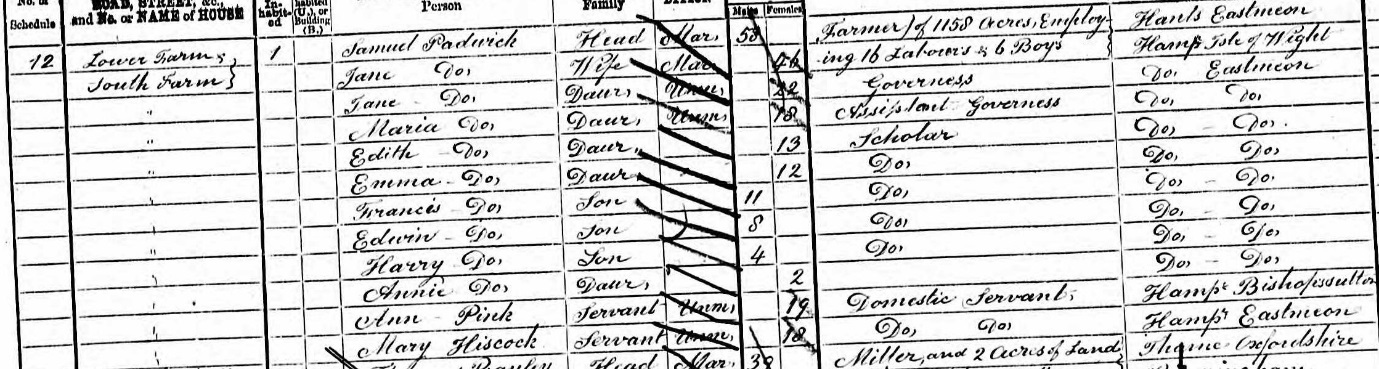 No. of Schedule ROAD, STREET, &c., and No. or NAME of HOUSE In-habit-ed habited (U.), or Building (B.) Person Family Males Females
12 Lower Farm, 1 Samuel Padwick Head Mar, 53 Farmer of 1158 Acres, Employ- Hants Eastmeon
South Farm } Jane Do, Wife Mar, 46 ing 16 Labour's & 6 Boys } Hamps Isle of Wight
" Jane Do, Daur, Unm, 22 Governess Do, Eastmeon
" Maria Do, Daur, Unm, 18 Assistant Governess Do, Do,
" Edith Do, Daur, 13 Scholar Do, Do,
" Emma Do, Daur 12 Do, Do, Do,
" Francis Do, Son 11 Do, Do, Do,
" Edwin Do, Son 8 Do, Do, Do,
" Harry Do, Son 4 Do, Do, Do,
" Annie Do, Daur, 2 Do, Do,
" Ann Pink Servant Unm, 19 Domestic Servant, Hamps Bishopssutton
" Mary Hiscock Servant Unm, 18 Do, Do, Hamps Eastmeon
Head Mar, Miller, and 2 Acres of Land } Thame Oxfordshire